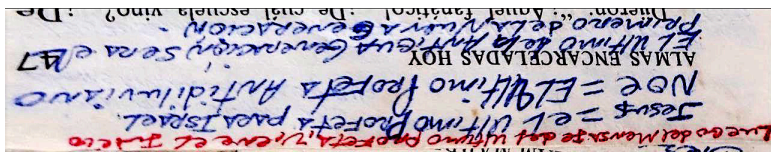 Luego del mensaje del ultimo profeta, viene el Juicio
Jesus = el ultimo profeta para Israel.
NOE = EL Ultimo Profeta Antidiluviano
ALMAS ENCARCELADAS HOY 47
EL ultimo de la Antigua Generacion Sera el
Primero de la Nueva Generacion.
Dijeron: "¡Aquel fanático! ¿De cuál escuela vino? ¿De